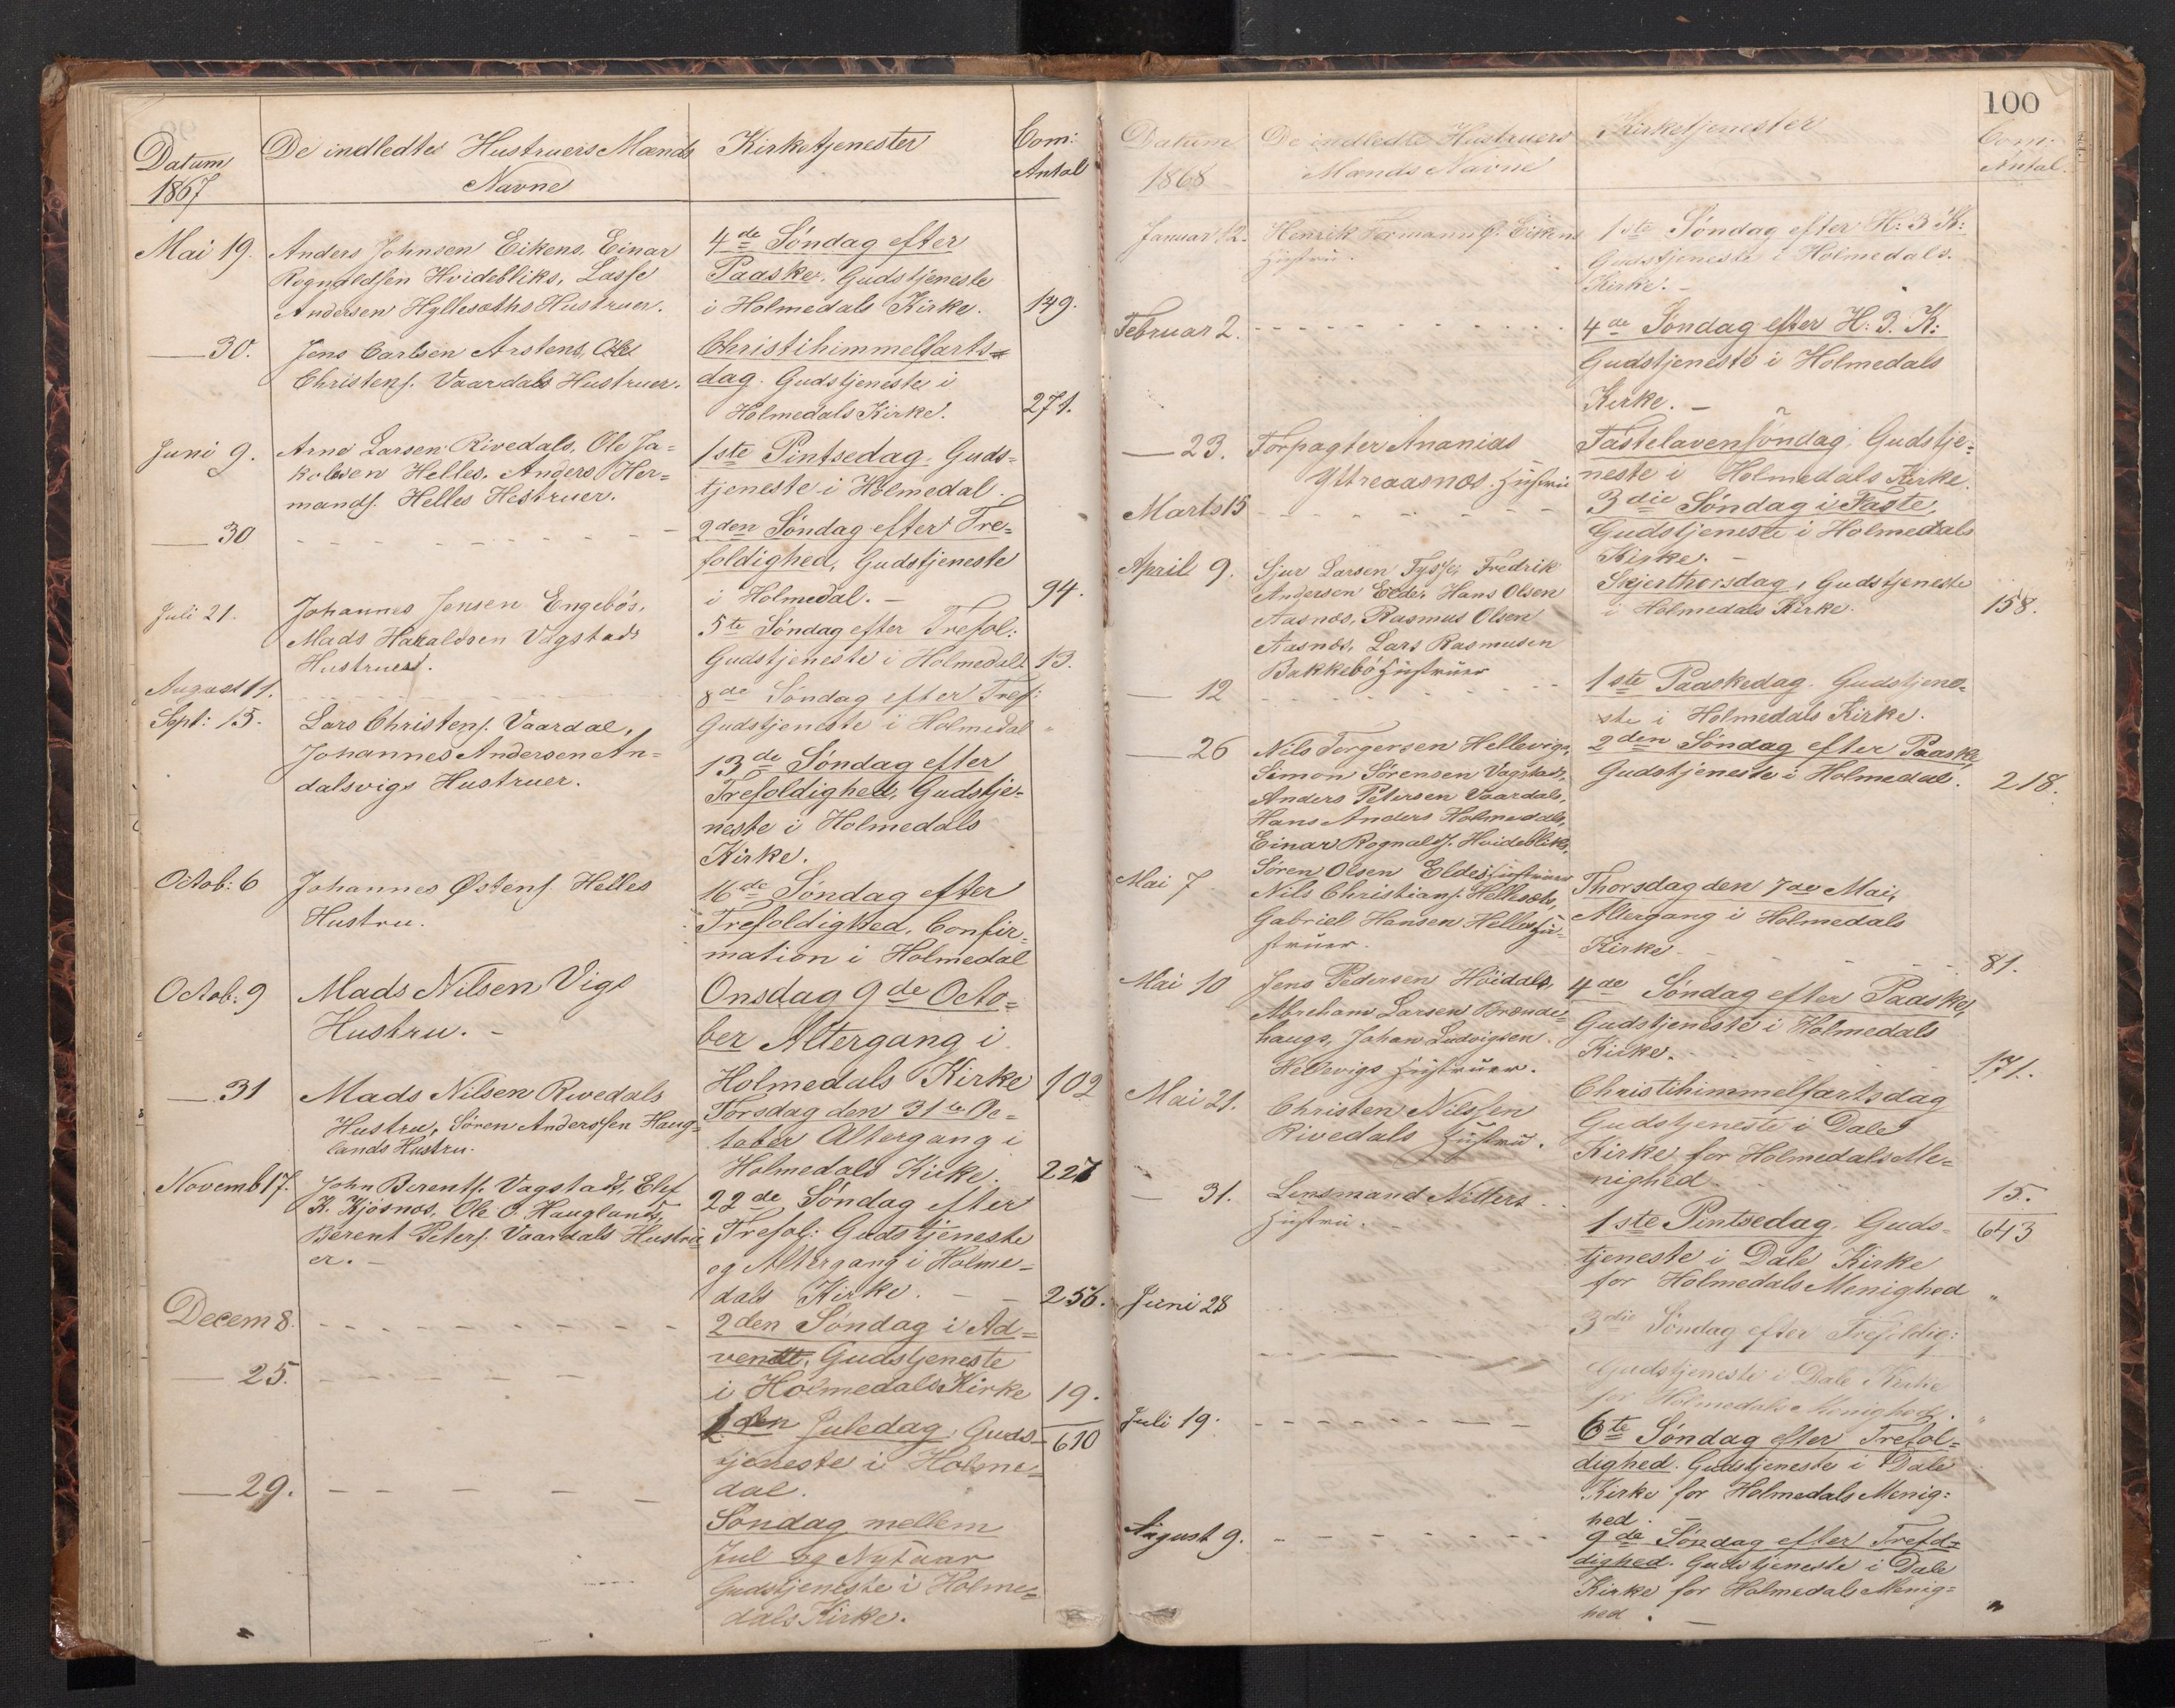 Datum
1867
De indledtes Hustruers Mænds
Navne
Kirketjenester
Com:
Antal
Mai 19.
Anders Johnsen Eikens, Einar
Rognaldsen Hvidebliks, Lasse
Andersen Hyllesøths Hustruer.
4de Söndag efter
Paaske. Gudstjeneste
i Holmedals Kirke.
149.
— 30.
Jens Carlsen Arstens,
Christens. Vaardals Hustruer.
Christihimmelfarts=
dag. Gudstjeneste i
Holmedals Kirke.
271.
Juni 9.
Arne Larsen Rivedals, Ole Ja=
kobsen Helles, Anders Her=
mands. Helles Hestruer.
1ste Pintsedag. Guds=
tjeneste i Holmedal.
— 30
2den Söndag efter Tre=
foldighed, Gudstjeneste
i Holmedal. —
94.
Juli 21.
Johannes Jensen Engebös,
Mads Haraldsen Vagstads
Hustruer.
5te Söndag efter Trefol:
Gudstjeneste i Holmedals
13.
August 11.
8de Söndag efter Tref:
Gudstjeneste i Holmedal
"
Sept: 15.
Lars Christens. Vaardal,
Johannes Andersen An=
dalsvigs Hustruer.
13de Söndag efter
Trefoldighed, Gudstje=
neste i Holmedals
Kirke.
Octob: 6
Johannes Østens. Helles
Hustru.
16de Söndag efter
Trefoldighed, Confir=
mation i Holmedal
Octob: 9
Mads Nilsen Vigs
Hustru. —
Onsdag 9de Octo=
ber Altergang i
Holmedals Kirke
102
— 31
Mads Nilsen Rivedals
Hustru, Sören Anderssen Haug=
lands Hustru.
Torsdag den 31te Oc=
tober Altergang i
Holmedals Kirke.
227
Novemb 17.
John Berents. Vagstads, Elef
K. Kjösnæs, Ole O. Hauglands,
Berent Peters. Vaardals Hustru=
er. —
22de Söndag efter
Trefol: Gudstjeneste
og Altergang i Holme=
dals Kirke. —
256.
Decem 8.
2den Söndag i Ad=
vent, Gudstjeneste
i Holmedals Kirke
19.
— 25.
Juledag, Guds=
tjeneste i Holme=
dal.
610
— 29.
Søndag mellem
Jul og Nytaar
Gudstjeneste i Holme=
dals Kirke.
100
Datum
1868
De indledte Hustruers
Mænds Navne
Kirketjenester
Com:
Antal.
Januar 12.
Henrik Formann G. Eikens
Hustru.
1ste Söndag efter H: 3 K:
Gudstjeneste i Holmedals.
Kirke. —
Februar 2.
4de Söndag efter H: 3. K:
Gudstjeneste i Holmedals
Kirke. —
— 23.
Forpagter Ananias
Yttreaasnæs. Hustru
Fastelavensöndag, Gudstje=
neste i Holmedals Kirke.
Marts 15
3die Söndag i Faste,
Gudstjeneste i Holmedals
Kirke. —
April 9.
Sjur Larsen Tysse, Fredrik
Andersen Elde, Hans Olsen
Aasnæs, Rasmus Olsen
Aasnæs, Lars Rasmusen
Bakkebö Hustruer
Skjerthorsdag, Gudstjeneste
i Holmedals Kirke.
158.
— 12
1ste Paaskedag. Gudstjene=
ste i Holmedals Kirke.
— 26
Nils Torgersen Hellevigs,
Simon Sörensen Vagstads,
Anders Petersen Vaardals,
Hans Anders Holmedals,
Einar Rognalds. Hvidebliks,
Sören Olsen Eldes Hustruer
2den Söndag efter Paaske,
Gudstjeneste i Holmedal.
218.
Mai 7
Nils Christians. Hellesøts,
Gabriel Hansen Helles Hu=
struer.
Thorsdag den 7de Mai,
Altergang i Holmedals
Kirke.
81.
Mai 10
Jens Pedersen Höidals,
Abraham Larsen Brænde=
haugs, Johan Ludvigsen
Hellevigs Hustruer.
4de Söndag efter Paaske,
Gudstjeneste i Holmedals
Kirke.
171.
Mai 21.
Christen Nilssen
Rivedals Hustru.
Christihimmelfartsdag
Gudstjeneste i Dale
Kirke for Holmedals Me=
nighed
15.
— 31.
Lensmand Nitters
Hustru.
1ste Pintsedag. Guds=
tjeneste i Dale Kirke
for Holmedals Menighed
643
"
Juni 28
3die Söndag efter Trefoldig:
Gudstjeneste i Dale Kirke
for Holmedals Menighed.
"
Juli 19.
6te Söndag efter Trefol=
dighed. Gudstjeneste i Dale
Kirke for Holmedals Menig=
hed. —
August 9.
9de Söndag efter Trefol=
dighed. Gudstjeneste i Dale
Kirke for Holmedals Menig=
hed. —
"